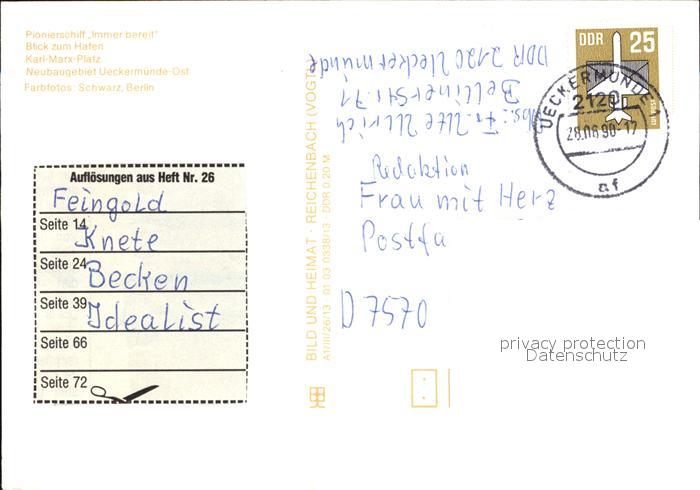 Pionierschiff „Immer bereit"
Blick zum Hafen
Karl-Marx-Platz
Neubaugebiet Ueckermünde-Ost
Farbfotos: Schwarz, Berlin
Auflösungen aus Heft Nr. 26
Feingold
Seite 14
Knete
Seite 24
Becken
Seite 39
Idealist
Seite 66
Seite 72
BILD UND HEIMAT · REICHENBACH (VOGTL
A1/III/26/13 01 03 0338/13 DDR 0,20 M
Abs.: Fr. Ute Ullrich
Bellinerstr. 71
DDR 2120 Ueckermünde
DDR 25
UECKERMÜNDE
2120
28.06.90-17
af
Redaktion
Frau mit Herz
Postfa
D 7570
privacy protection
Datenschutz